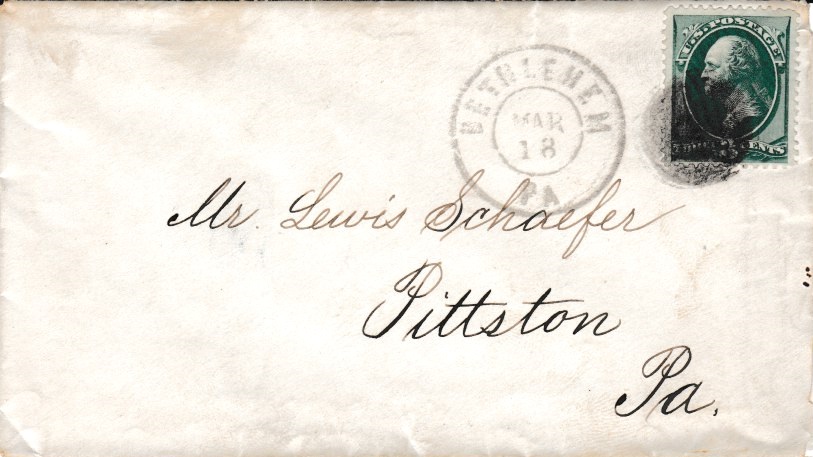 U.S. POSTAGE
BETHLEHEM
MAR
18
PA
CENTS
Mr. Lewis Schaefer
Pittston
Pa.